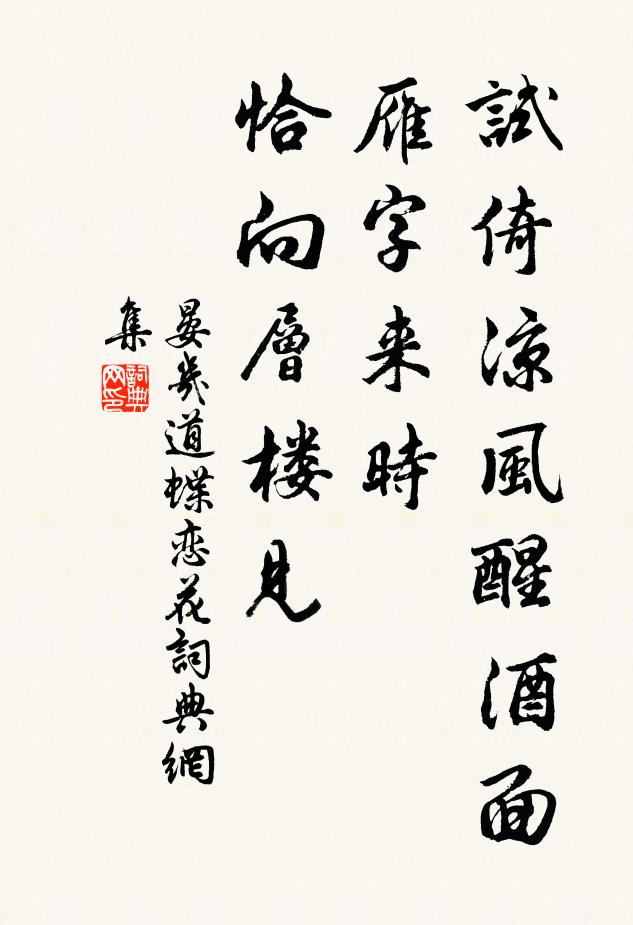 試倚涼風醒酒面
雁字来時
恰向層楼見
晏幾道蝶恋花詞典網
集
詞典
网印